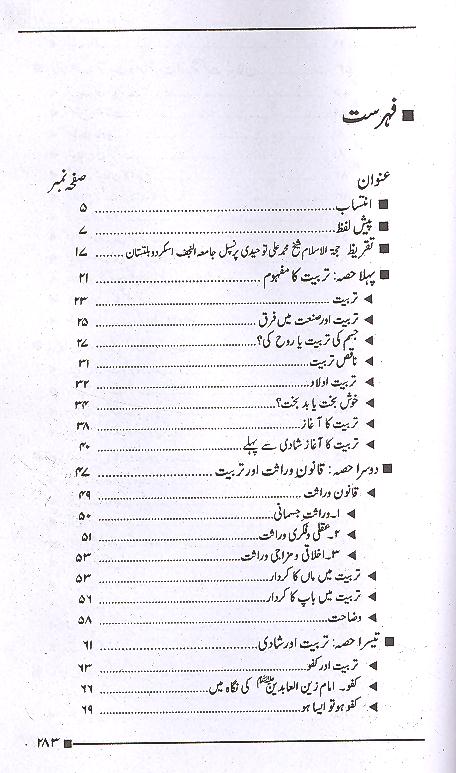 ■ فہرست
عنوان صفحہ نمبر
■ انتساب ۵
■ پیش لفظ ۷
■ تقریظ حجۃ الاسلام شیخ محمد علی توحیدی پرنسپل جامعۃ النجف اسکردو بلتستان ۱۷
■ پہلا حصہ: تربیت کا مفہوم ۲۱
◄ تربیت ۲۳
◄ تربیت اور صنعت میں فرق ۲۵
◄ جسم کی تربیت یا روح کی؟ ۲۷
◄ ناقص تربیت ۳۱
◄ تربیت اولاد ۳۲
◄ خوش بخت یا بد بخت؟ ۳۴
◄ تربیت کا آغاز ۳۸
◄ تربیت کا آغاز شادی سے پہلے ۴۰
■ دوسرا حصہ: قانون وراثت اور تربیت ۴۷
◄ قانون وراثت ۴۹
◄ ۱۔ وراثت جسمانی ۵۰
◄ ۲۔ عقلی و فکری وراثت ۵۱
◄ ۳۔ اخلاقی و مزاجی وراثت ۵۳
◄ تربیت میں ماں کا کردار ۵۳
◄ تربیت میں باپ کا کردار ۵۶
◄ وضاحت ۵۸
■ تیسرا حصہ: تربیت اور شادی ۶۱
◄ تربیت اور کفو ۶۳
◄ کفو۔ امام زین العابدین علیہ السلام کی نگاہ میں ۶۶
◄ کفو ہو تو ایسا ہو ۶۹
■ ۲۸۳